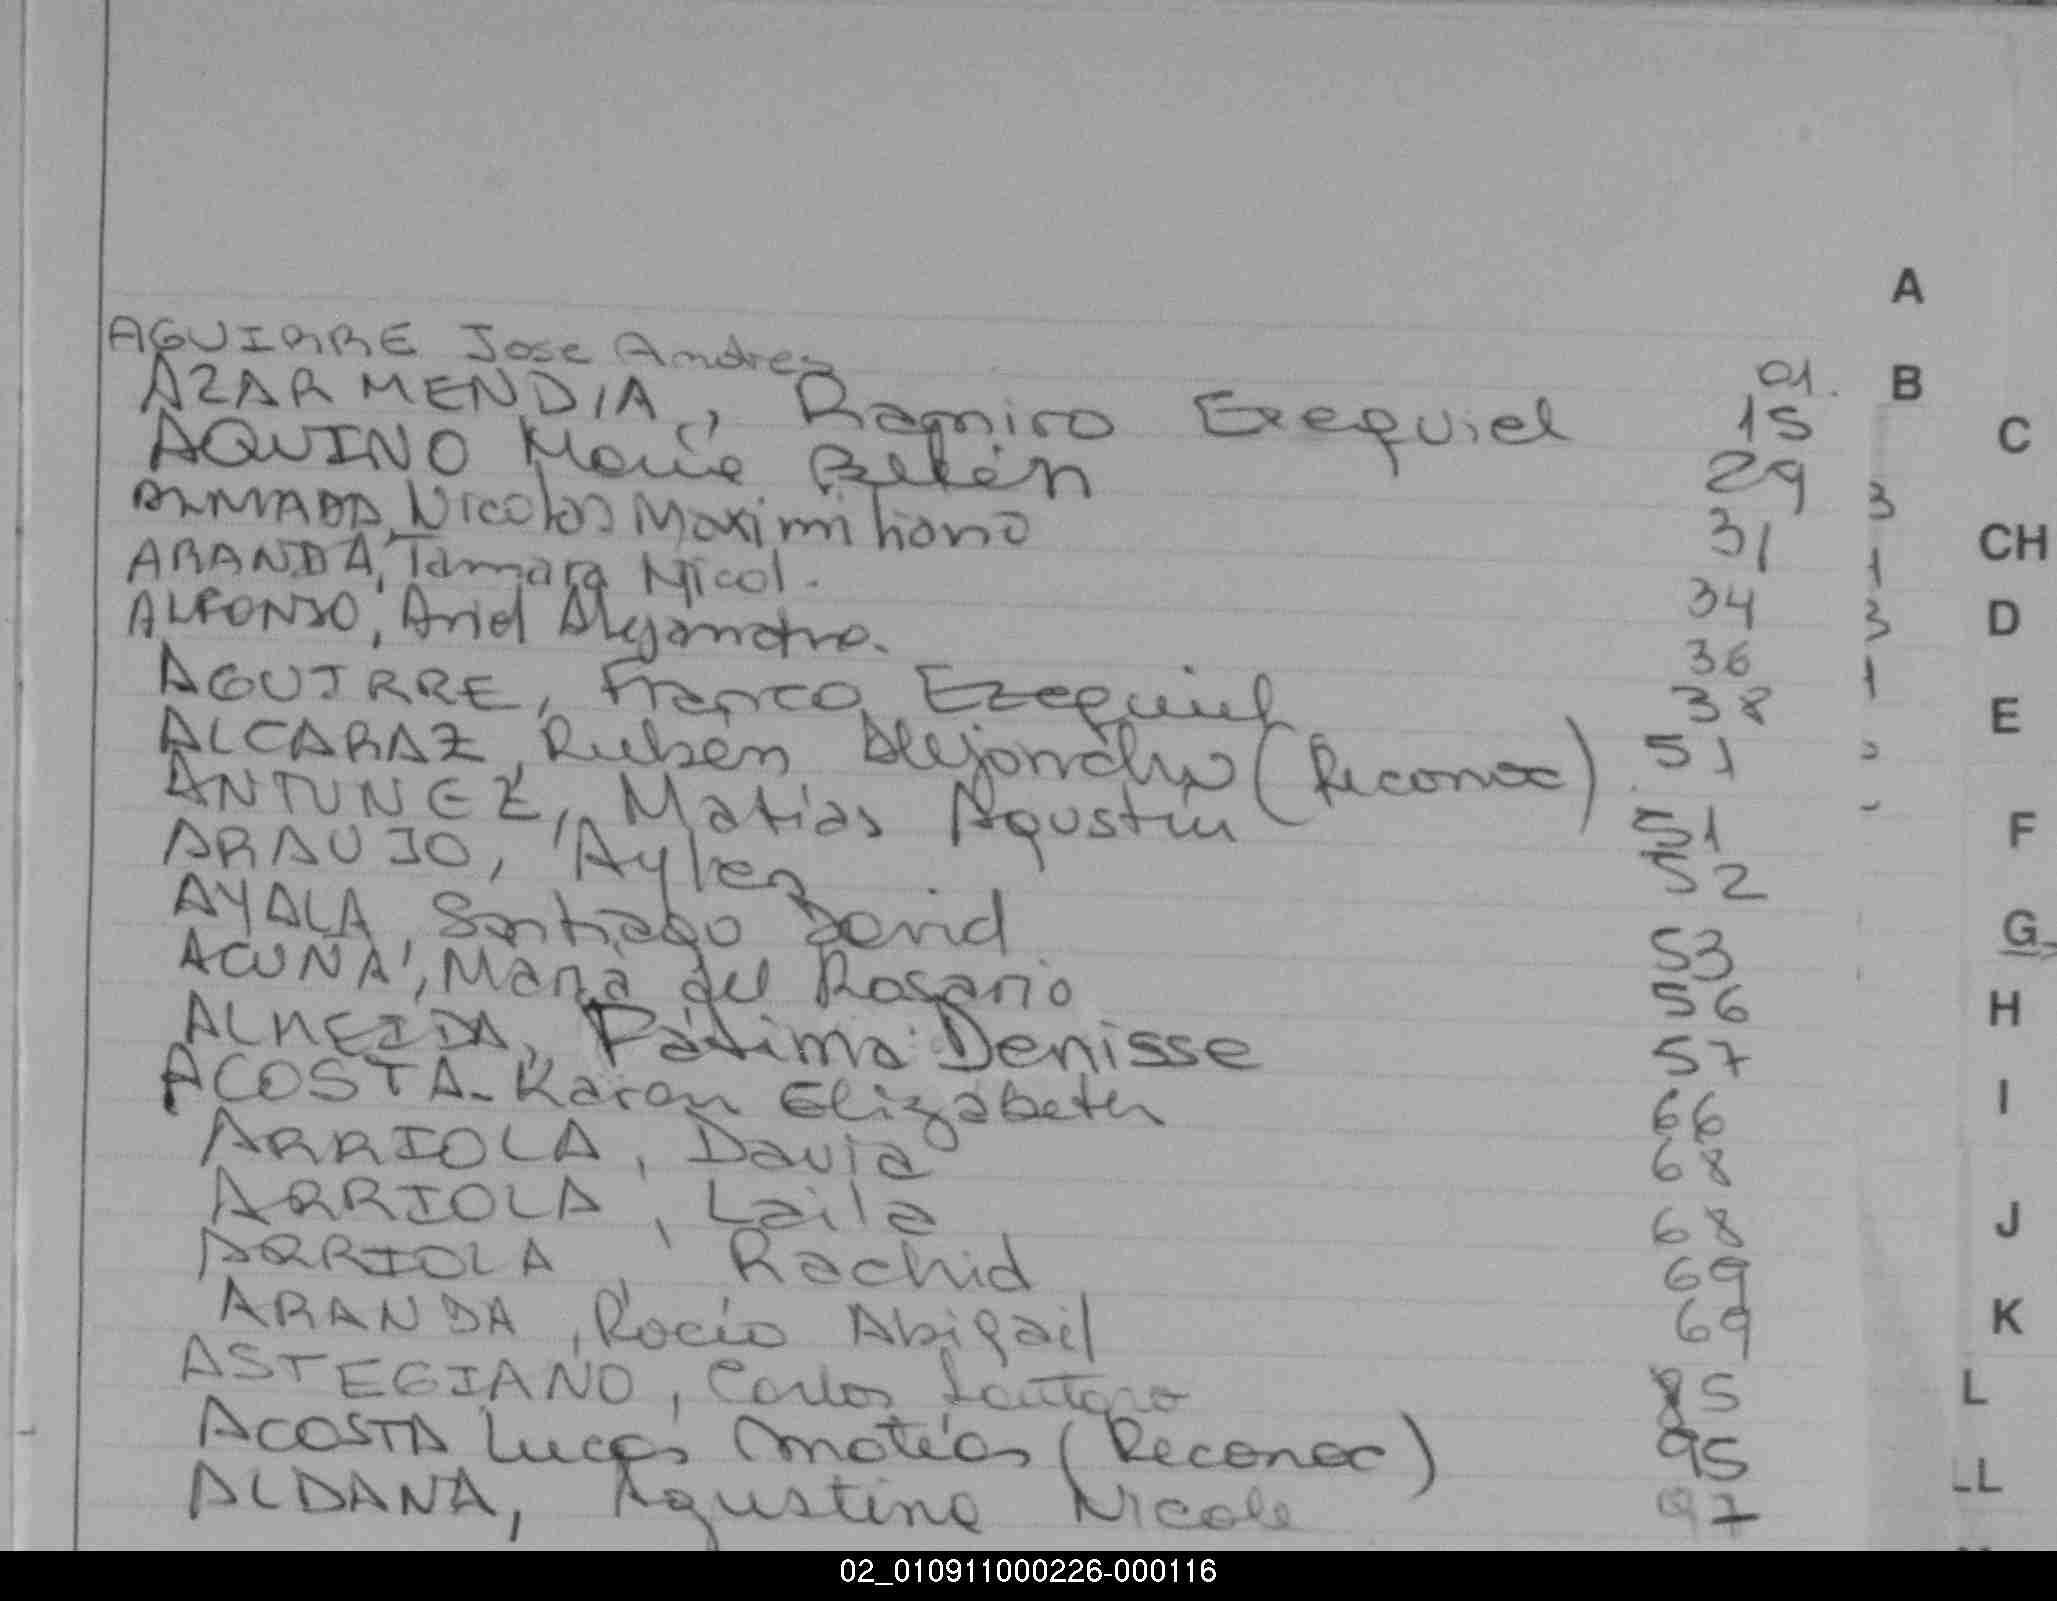 A
AGUIRRE Jose Andres 01.
B
AZARMENDIA, Ramiro Ezequiel 15
C
AQUINO María Belén 29
3
ALMADA, Nicolas Maximiliano 31
CH
1
ARANDA, Tamara Nicol. 34
D
3
ALFONSO, Ariel Alejandro. 36
1
AGUIRRE, Franco Ezequiel 38
E
ALCARAZ, Ruben Alejandro (Reconoc) 51
ANTUNEZ, Matias Agustin 51
F
ARAUJO, Aylen 52
AYALA, Santiago David 53
G
ACUÑA, Maria del Rosario 56
H
ALMEIDA, Fátima Denisse 57
I
ACOSTA - Karen Elizabeth 66
ARRIOLA, David 68
ARRIOLA, Laila 68
J
ARRIOLA, Rachid 69
ARANDA, Rocío Abigail 69
K
ASTEGIANO, Carlos Lautaro 85
L
ACOSTA Lucas Matías (Reconoc) 95
LL
ALDANA, Agustina Nicole 97
02_010911000226-000116